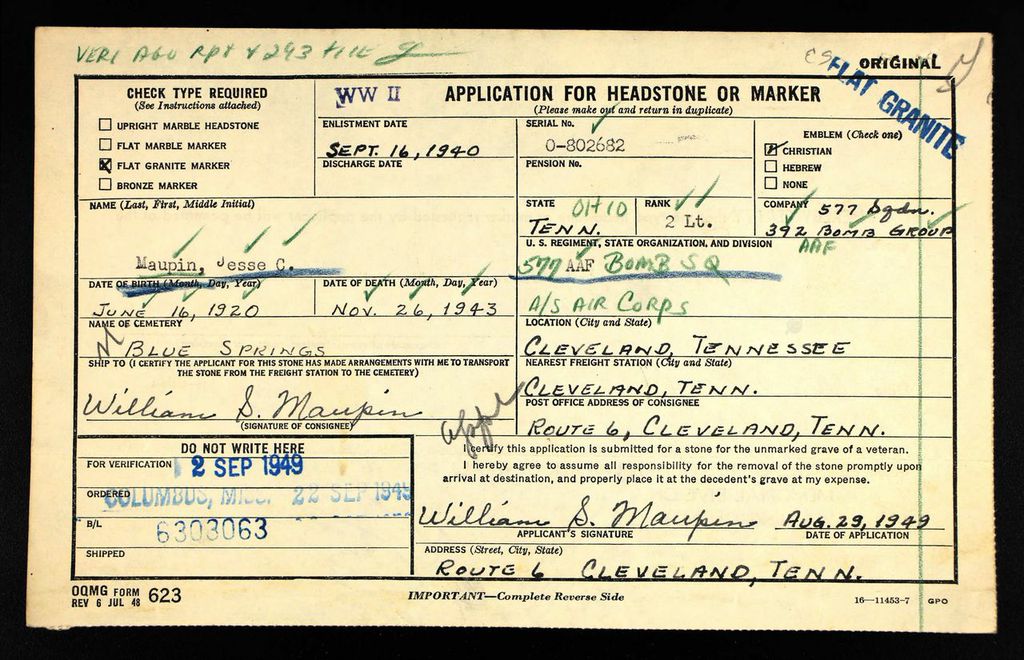 VERI AGO RPT & 293 FILE
ORIGINAL
FLAT GRANITE
CHECK TYPE REQUIRED
(See Instructions attached)
UPRIGHT MARBLE HEADSTONE
FLAT MARBLE MARKER
X FLAT GRANITE MARKER
BRONZE MARKER
WW II
APPLICATION FOR HEADSTONE OR MARKER
(Please make out and return in duplicate)
ENLISTMENT DATE
SEPT. 16, 1940
DISCHARGE DATE
SERIAL No.
O-802682
PENSION No.
EMBLEM (Check one)
X CHRISTIAN
HEBREW
NONE
NAME (Last, First, Middle Initial)
Maupin, Jesse C.
STATE OHIO
TENN.
RANK
2 Lt.
COMPANY 577 Sqdn.
392 BOMB GROUP
AAF
U. S. REGIMENT, STATE ORGANIZATION, AND DIVISION
577 AAF BOMB SQ
A/S AIR CORPS
DATE OF BIRTH (Month, Day, Year)
JUNE 16, 1920
DATE OF DEATH (Month, Day, Year)
NOV. 26, 1943
NAME OF CEMETERY
BLUE SPRINGS
LOCATION (City and State)
CLEVELAND, TENNESSEE
SHIP TO (I CERTIFY THE APPLICANT FOR THIS STONE HAS MADE ARRANGEMENTS WITH ME TO TRANSPORT
THE STONE FROM THE FREIGHT STATION TO THE CEMETERY)
William S. Maupin
(SIGNATURE OF CONSIGNEE)
NEAREST FREIGHT STATION (City and State)
CLEVELAND, TENN.
POST OFFICE ADDRESS OF CONSIGNEE
ROUTE 6, CLEVELAND, TENN.
appl
DO NOT WRITE HERE
FOR VERIFICATION 2 SEP 1949
ORDERED
COLUMBUS, MISS. 22 SEP 1949
B/L
6303063
SHIPPED
I certify this application is submitted for a stone for the unmarked grave of a veteran.
I hereby agree to assume all responsibility for the removal of the stone promptly upon
arrival at destination, and properly place it at the decedent's grave at my expense.
William S. Maupin AUG. 29, 1949
APPLICANT'S SIGNATURE DATE OF APPLICATION
ADDRESS (Street, City, State)
ROUTE 6 CLEVELAND, TENN.
OQMG FORM 623
REV 6 JUL 48
IMPORTANT—Complete Reverse Side
16—11453-7 GPO